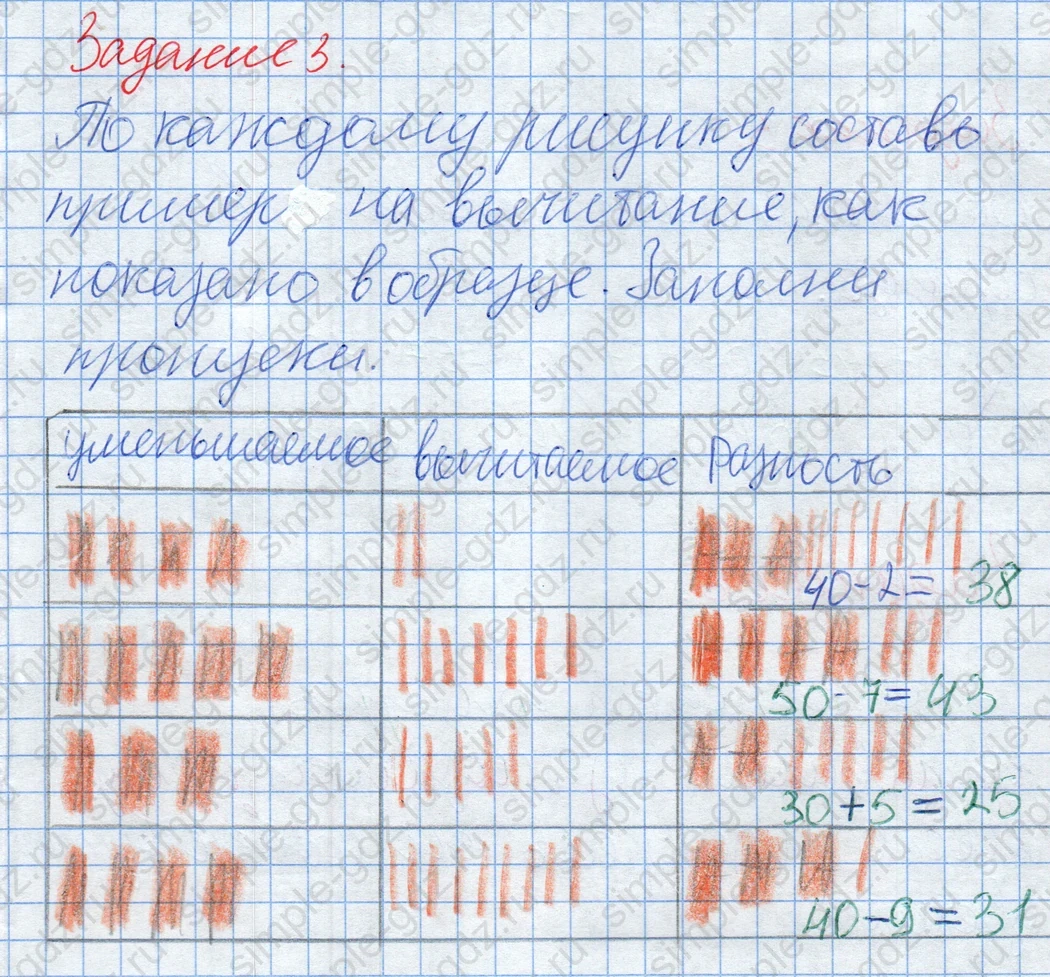 Задание 3.
По каждому рисунку составь
пример на вычитание, как
показано в образце. Заполни
пропуски.
уменьшаемое вычитаемое Разность
40-2= 38
50-7= 43
30+5=25
40-9=31
simple-gdz.ru